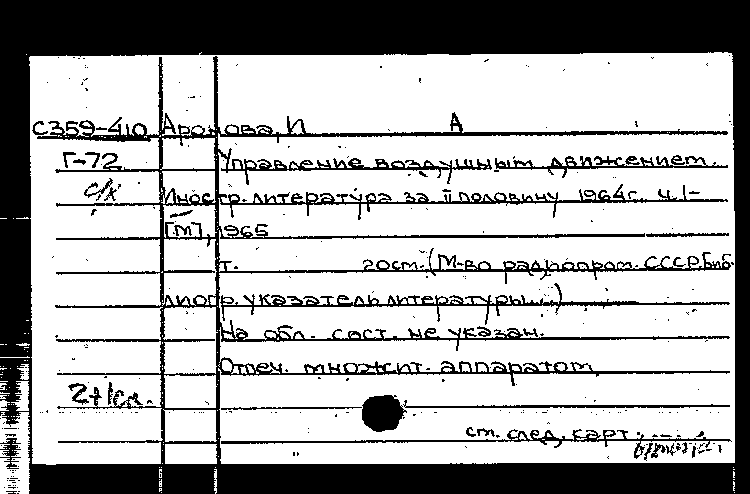 С359-410 Аронова, И А
Г-72 Управление воздушным движением.
с/к Иностр. литература за II половину 1964г. ч. I-
[М], 1965
т. 20см. (М-во радиопром. СССР. Биб-
лиогр. указатель литературы...)
На обл. сост. не указан.
Отпеч. множит. аппаратом
2+1сл.
см. след. карт.